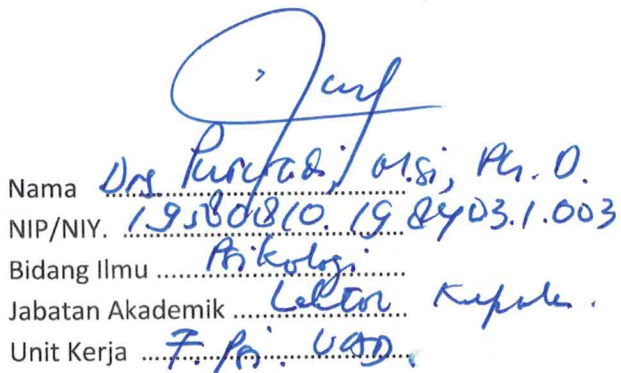 Nama Drs. Purwadi, M.Si, Ph.D.
NIP/NIY. 19580810.198403.1.003
Bidang Ilmu Psikologi
Jabatan Akademik Lektor Kepala.
Unit Kerja F. Psi. UAD.